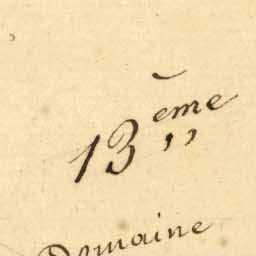 13ème
Domaine